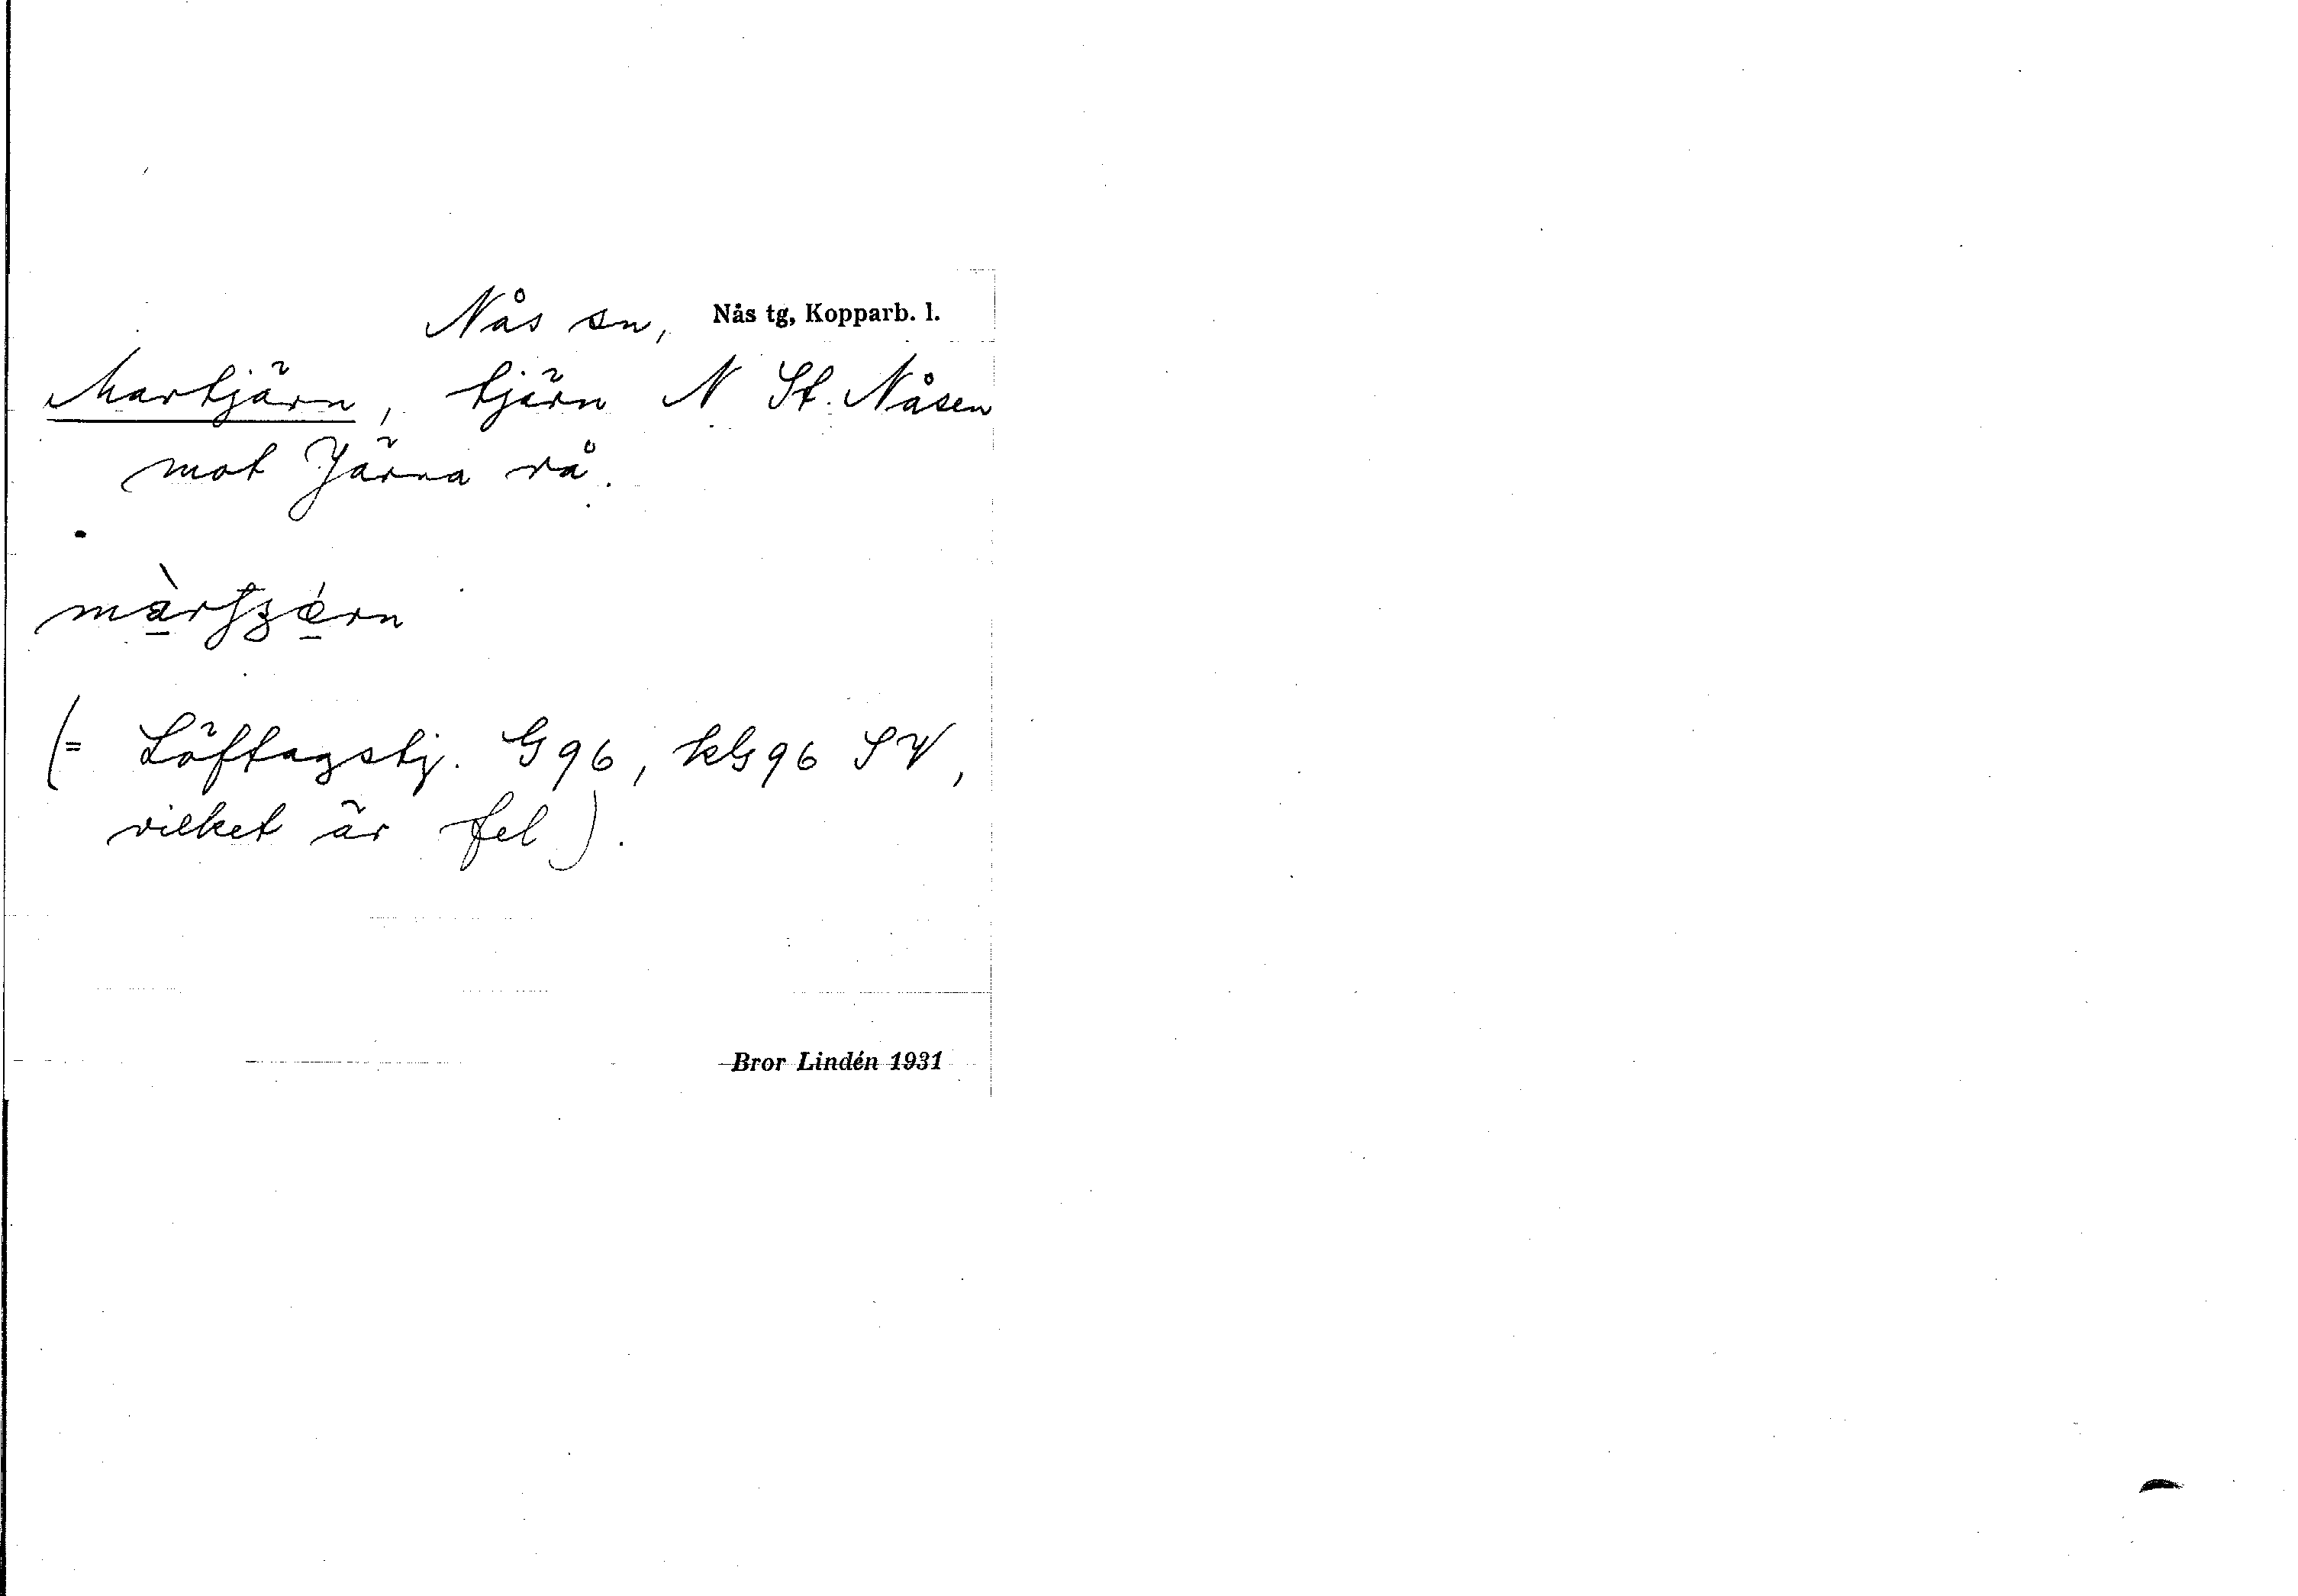 Nås sn, Nås tg, Kopparb. l.
Martjärn, tjärn N St. Nåsen
mot Järna rå.
(= Löftagstj. G96, kG96 SV,
vilket är fel).
Bror Lindén 1931